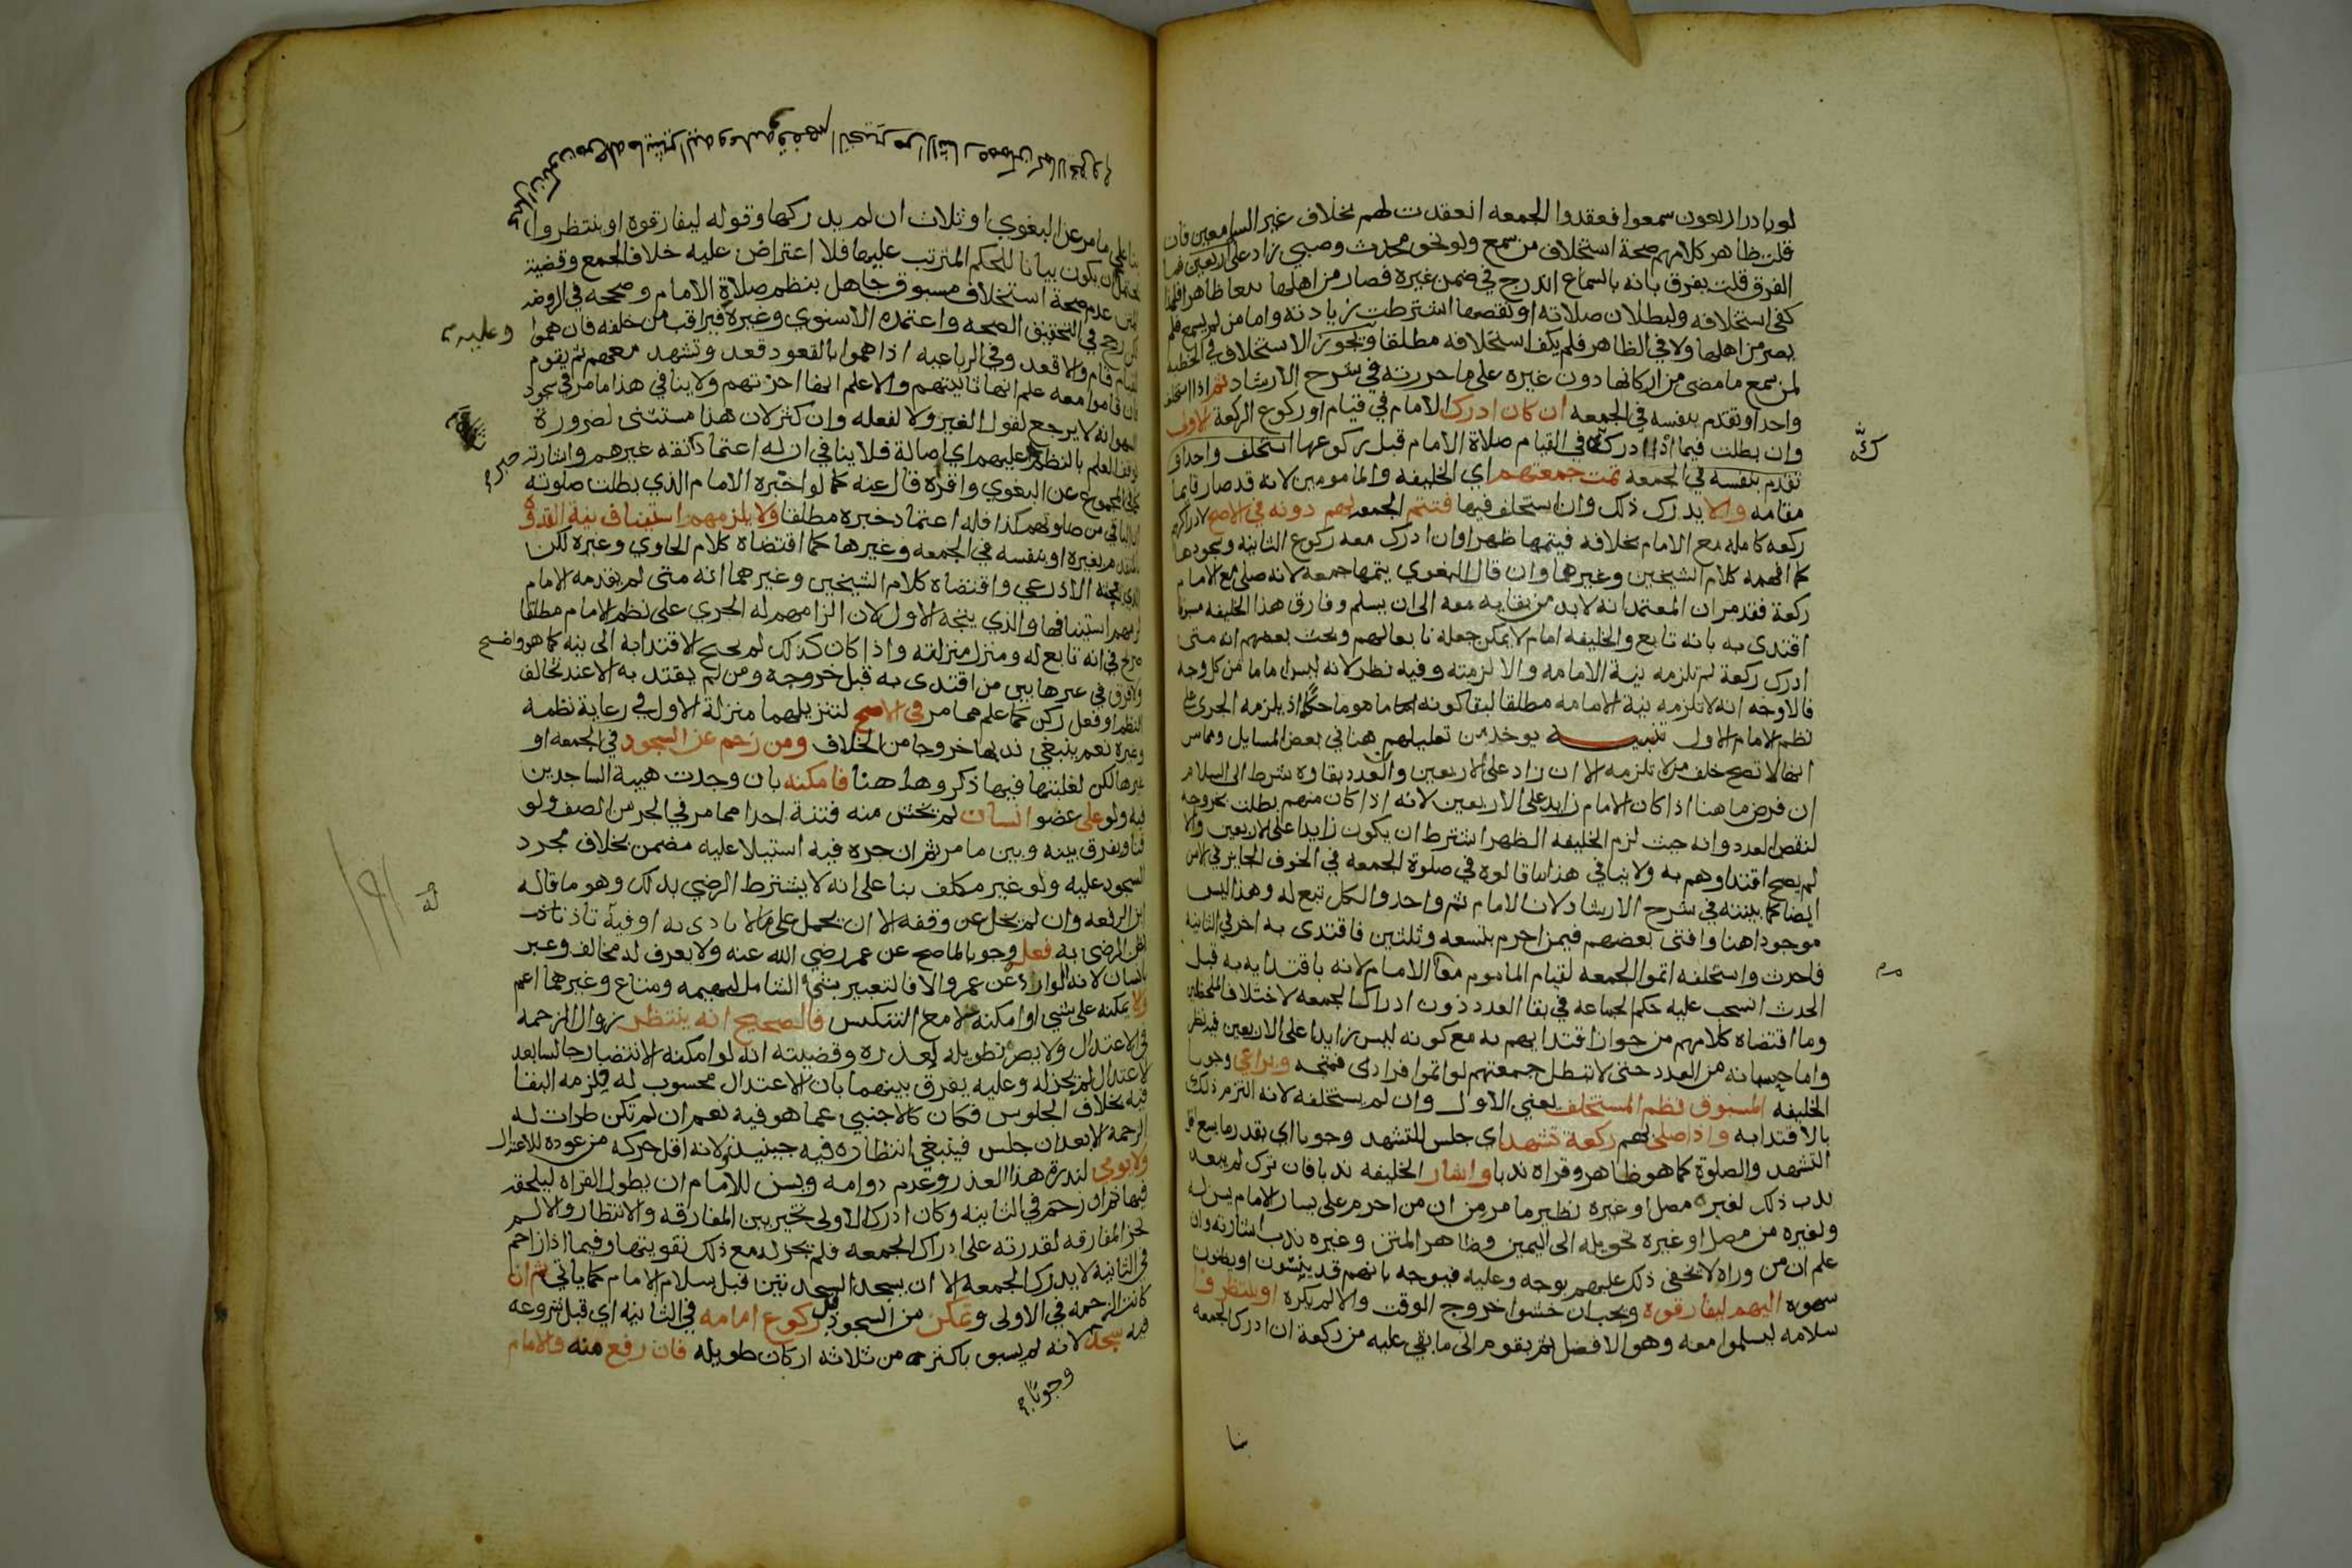 لو بادر اربعون سمعوا فعقدوا الجمعه انعقدت لهم بخلاف غير السامعين فان
قلت ظاهر كلامهم صحة استخلاف من سمع ولو نحو محدث وصبي زاد على الاربعين فما
الفرق قلت يفرق بانه بالسماع اندرج في ضمن غيره فصار من اهلها تبعا ظاهرا فلهذا
كفى استخلافه ولبطلان صلاته او نقصها اشترطت زيادته واما من لم يسمع فلم
يصر من اهلها ولا في الظاهر فلم يكف استخلافه مطلقا ويجوز الاستخلاف في الخطبه
لمن سمع ما مضى من اركانها دون غيره على ما حررته في شرح الارشاد ثم اذا استخلف
واحدا وتقدم بنفسه في الجمعه ان كان ادرك الامام في قيام او ركوع الركعة الاولى
وان بطلت فيما اذا ادركه في القيام صلاة الامام قبل ركوعها استخلف واحدا و
تقدم بنفسه في الجمعة تمت جمعتهم اي الخليفه والمامومين لانه قد صار قايما
مقامه والا يدرك ذلك وان استخلف فيها فتتم الجمعه لهم دونه في الاصح لادراكهم
ركعه كامله مع الامام بخلافه فيتمها ظهرا وان ادرك معه ركوع الثانيه وسجودها
كما افهمه كلام الشيخين وغيرهما وان قال البغوي يتمها جمعه لانه صلى مع الامام
ركعة فقد مر ان المعتمد انه لابد من بقايه معه الى ان يسلم وفارق هذا الخليفه مسبوقا
اقتدى به بانه تابع والخليفه امام لا يمكن جعله تابعا لهم وبحث بعضهم انه متى
ادرك ركعة لم تلزمه نية الامامه والا لزمته وفيه نظر لانه ليس اماما من كل وجه
فالاوجه انه لا تلزمه نية الامامه مطلقا لبقا كونه ماموما حكما اذ يلزمه الجري على
نظم الامام الاول تنبيه يوخذ من تعليلهم هنا في بعض المسايل ومما مر
انها لا تصح خلف من لا تلزمه الا ان زاد على الاربعين والعدد بقاوه شرط الى السلام
ان فرض ما هنا اذا كان الامام زايدا على الاربعين لانه اذا كان منهم بطلت بخروجه
لنقص العدد وانه حيث لزم الخليفه الظهر اشترط ان يكون زايدا على الاربعين والا
لم يصح اقتداوهم به ولا ينافي هذا ما قالوه في صلوة الجمعه في الخوف الجايز في الامن
ايضا كما بينته في شرح الارشاد لان الامام ثم واحد والكل تبع له وهذا ليس
موجودا هنا وافتى بعضهم فيمن احرم بتسعه وثلثين فاقتدى به اخر في الثانيه
فاحدث واستخلفه اتموا الجمعه لقيام الماموم مقام الامام لانه باقتدايه به قبل
الحدث انسحب عليه حكم الجماعه في بقا العدد دون ادراك الجمعه لاختلاف الملحظين
وما اقتضاه كلامهم من جواز اقتدايهم به مع كونه ليس زايدا على الاربعين فيه نظر
واما حسبانه من العدد حتى لا تبطل جمعتهم لو اتموا فرادى فمتجه ويراعي وجوبا
الخليفه المسبوق نظم المستخلف يعني الاول وان لم يستخلفه لانه التزم ذلك
بالاقتدا به واذا صلى لهم ركعة تشهد اي جلس للتشهد وجوبا اي بقدر ما يسع اقل
التشهد والصلوة كما هو ظاهر وقراه ندبا واشار الخليفه ندبا فان ترك لم يبعد
ندب ذلك لغيره مصل او غيره نظير ما مر من ان من احرم على يسار الامام يسن له
ولغيره من مصل او غيره تحويله الى اليمين وظاهر المتن وغيره ندب اشارته وان
علم ان من وراه لا يخفى ذلك عليهم بوجه وعليه فيوجه بانهم قد ينسون او يظنون
سهوه اليهم ليفارقوه ويجب ان خشوا خروج الوقت والا لم يكره او ينتظروا
سلامه ليسلموا معه وهو الافضل ثم يقوم الى ما بقي عليه من ركعة ان ادرك الجمعه
بنا
بنا على ما مر عن البغوي او ثلاث ان لم يدركها وقوله ليفارقوه او ينتظروا
يحتمل ان يكون بيانا للحكم المترتب عليها فلا اعتراض عليه خلافا لجمع وقضية
المتن عدم صحة استخلاف مسبوق جاهل بنظم صلاة الامام وصححه في الروضه
لكن رجح في التحقيق الصحه واعتمده الاسنوي وغيره فيراقب من خلفه فان هموا
وعليه
لقيام قام والا قعد وفي الرباعيه اذا هموا بالقعود قعد وتشهد معهم ثم يقوم
فان قاموا معه علم انها ثانيتهم والا علم انها اخرتهم ولا ينافي هذا ما مر في سجود
السهو انه لا يرجع لقول الغير ولا لفعله وان كثر لان هذا مستثنى لضرورة
توقف العلم بالنظم عليهم اي اصالة فلا ينافي ان له اعتماد ثقه غيرهم واشارته
كما في المجموع عن البغوي واقره قال عنه كما لو اخبره الامام الذي بطلت صلوته
ان الباقي من صلوتهم كذا فله اعتماد خبره مطلقا ولا يلزمهم استيناف نية القدوة
لمتقدم بغيره او بنفسه في الجمعه وغيرها كما اقتضاه كلام الحاوي وغيره لكن
الذي بحثه الاذرعي واقتضاه كلام الشيخين وغيرهما انه متى لم يقدمه الامام
لزمهم استينافها والذي يتجه الاول لان الزامهم له الجري على نظم الامام مطلقا
صريح في انه تابع له ومنزل منزلته واذا كان كذلك لم يحتج الاقتدا به الى نيه كما هو واضح
ولا فرق في غيرها بين من اقتدى به قبل خروجه ومن لم يقتد به الا عند تخالف
النظم او فعل ركن كما علم مما مر في الاصح لتنزيلهما منزلة الاول في رعاية نظمه
وغيره نعم ينبغي ندبها خروجا من الخلاف ومن زحم عن السجود في الجمعه او
غيرها لكن لغلبتها فيها ذكروها هنا فامكنه بان وجدت هيية الساجدين
فيه ولو على عضو انسان لم يخش منه فتنة اخذا مما مر في الجر من الصف ولو
قنا ويفرق بينه وبين ما مر ثم ان جره فيه استيلا عليه مضمن بخلاف مجرد
السجود عليه ولو غير مكلف بنا على انه لا يشترط الرضي بذلك وهو ما قاله
ابن الرفعه وان لم يخل عن وقفه الا ان يحمل على ما لا يادى به او فيه تاذ تافه
ظن الرضى به فعل وجوبا لما صح عن عمر رضي الله عنه ولا يعرف له مخالف وعبر
بانسان لانه الوارد عن عمر والا فالتعبير بشي الشامل لبهيمه ومتاع وغيرهما اعم
والا يمكنه على شي او امكنه لا مع التنكيس فالصحيح انه ينتظر زوال الزحمه
في الاعتدال ولا يضر تطويله لعذره وقضيته انه لو امكنه الانتظار جالسا بعد
الاعتدال لم يجز له وعليه يفرق بينهما بان الاعتدال محسوب له فلزمه البقا
فيه بخلاف الجلوس فكان كالاجنبي عما هو فيه نعم ان لم تكن طرات له
الزحمه الا بعد ان جلس فينبغي انتظاره فيه حينيذ لانه اقل حركه من عوده للاعتدال
ولا يومي لندرة هذا العذر وعدم دوامه ويسن للامام ان يطول القراه ليلحقه
فيها ثم ان زحم في الثانيه وكان ادرك الاولى تخير بين المفارقه والانتظار والا لم
تجز المفارقه لقدرته على ادراك الجمعه فلم يجز له مع ذلك تفويتها وفيما اذا زحم
في الثانيه لا يدرك الجمعه الا ان يسجد السجدتين قبل سلام الامام كما ياتي ثم ان
كانت الزحمه في الاولى وتمكن من السجود قبل ركوع امامه في الثانيه اي قبل شروعه
فيه سجد لانه لم يسبق باكثر من ثلاثه اركان طويله فان رفع منه والامام
وجوبا